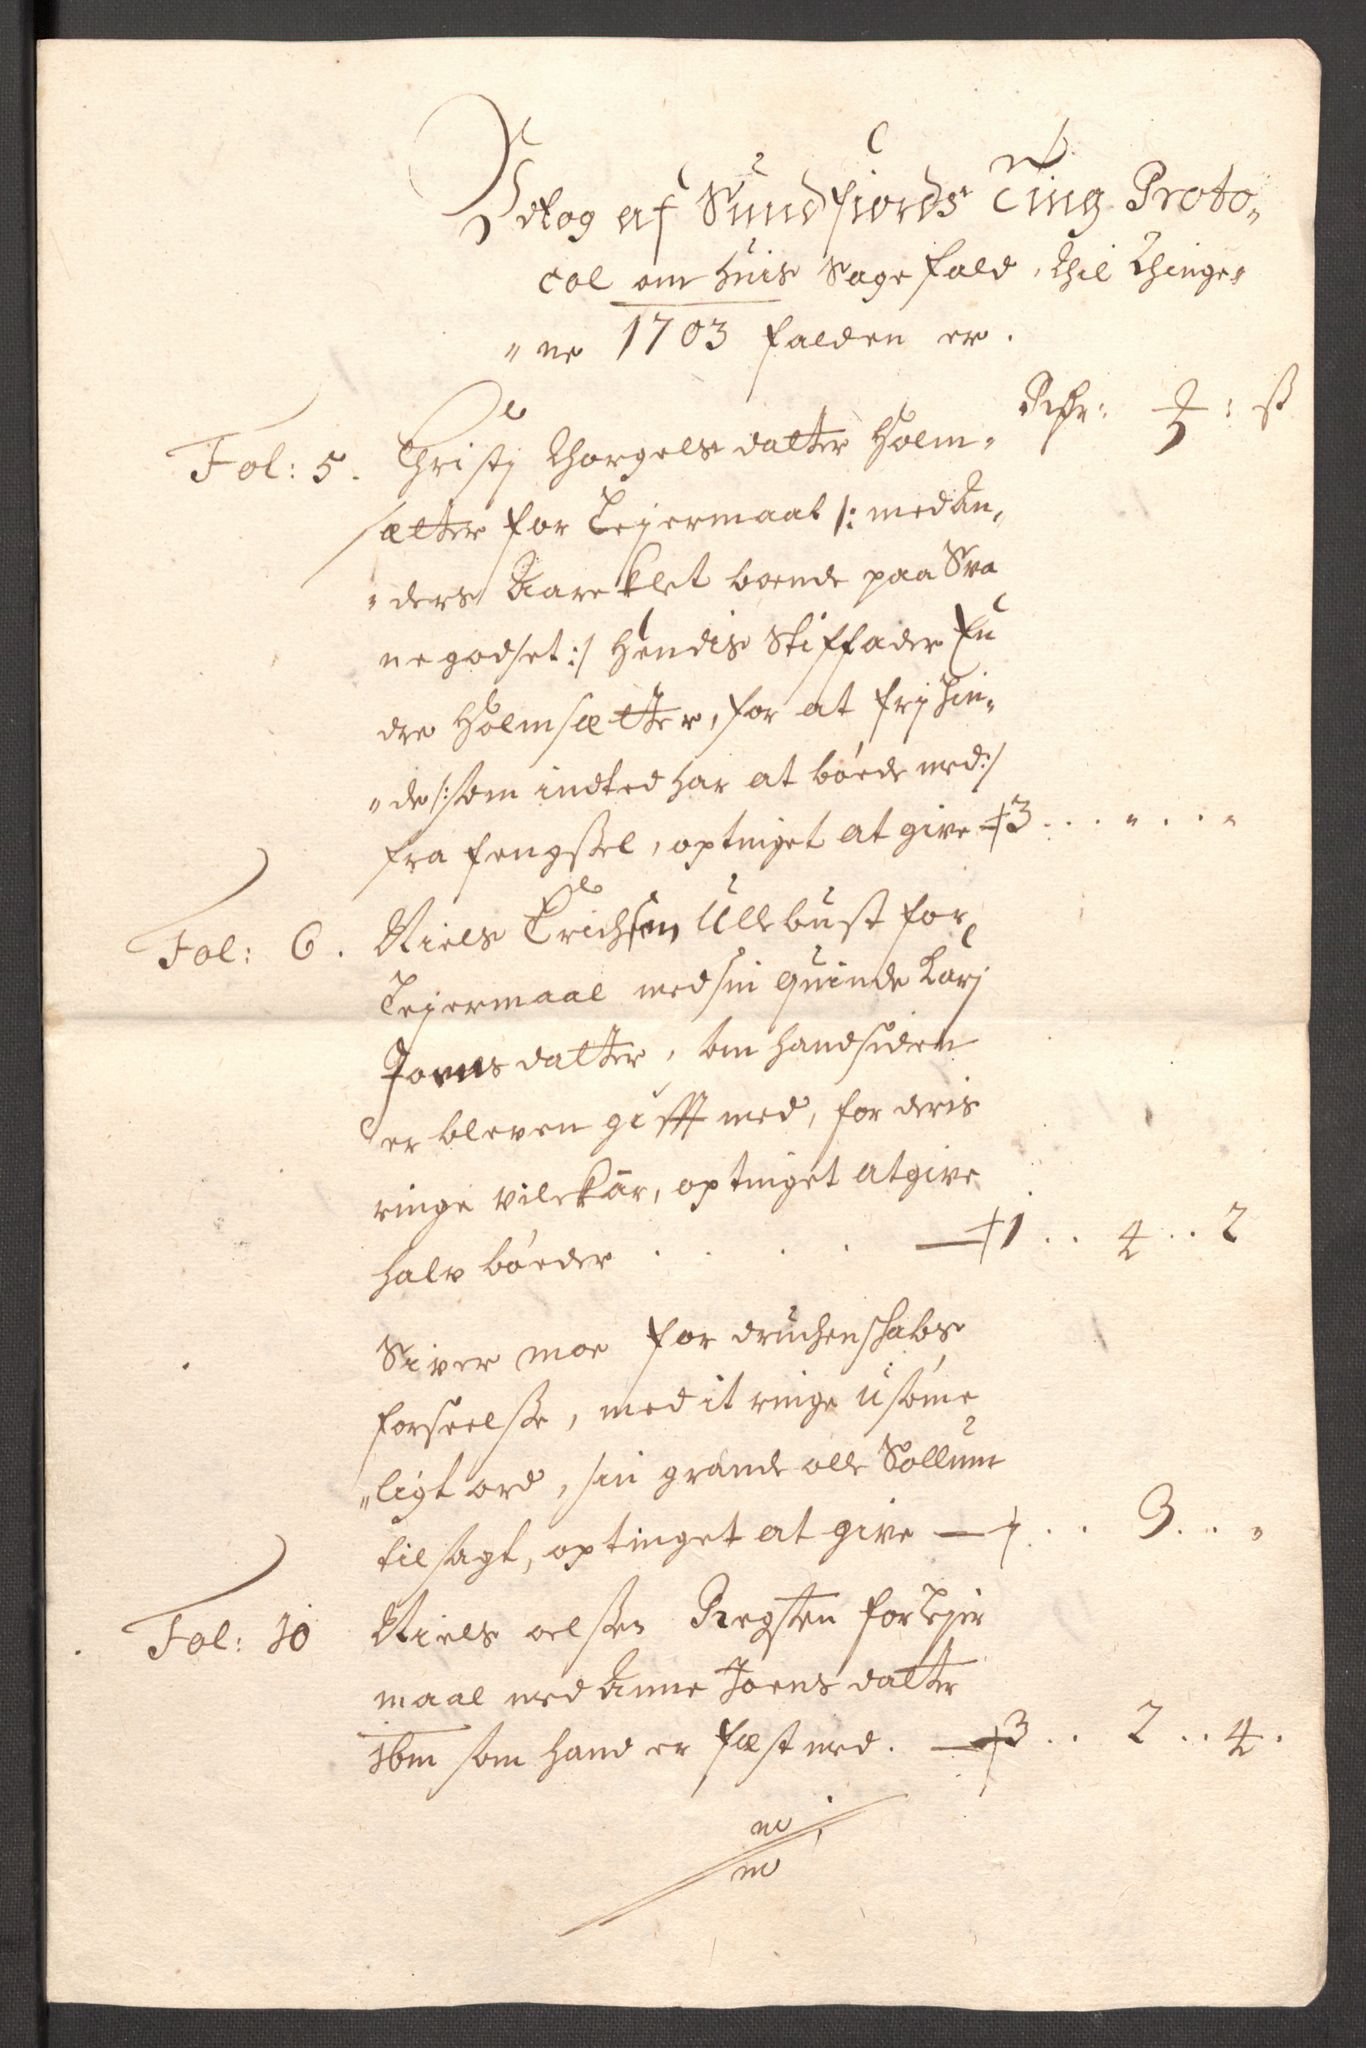 Udtog af Sundfiords Ting Proto„
col om huis Sagefald, thil thinge„
„ne 1703 falden er.
Rdr: ꝣ: ß
Fol: 5. Christj Thorgels datter Holm„
sætter for Lejermaal /: med An„
„ders Aareklet boende paa Sva
negodset :/ hendis Stiffader En
dre Holmsætter, for at frj hin„
„de /: som indted har at bøede med :/
fra fengßel, optinget at give 3 . . . „ . . . „
Fol: 6. Niels Erichsen Ullebust for
Lejermaal med sin quinde Karj
Joensdatter, som hand siden
er bleven gifft med, for deris
ringe vilckår, optinget at give
halv bøeder . . . . 1 . . 4 . . 2
Siver moe for druchenschabs
forseelße, med it ringe usøme
„ligt ord, sin grande olle Sollum
tilsagt, optinget at give . . 3 . . „
Fol: 10 Niels oelßen Regsten for Lejer
maal med Anne Joens datter
ibm som hand er fæst med. 3 . . 2 . . 4 .